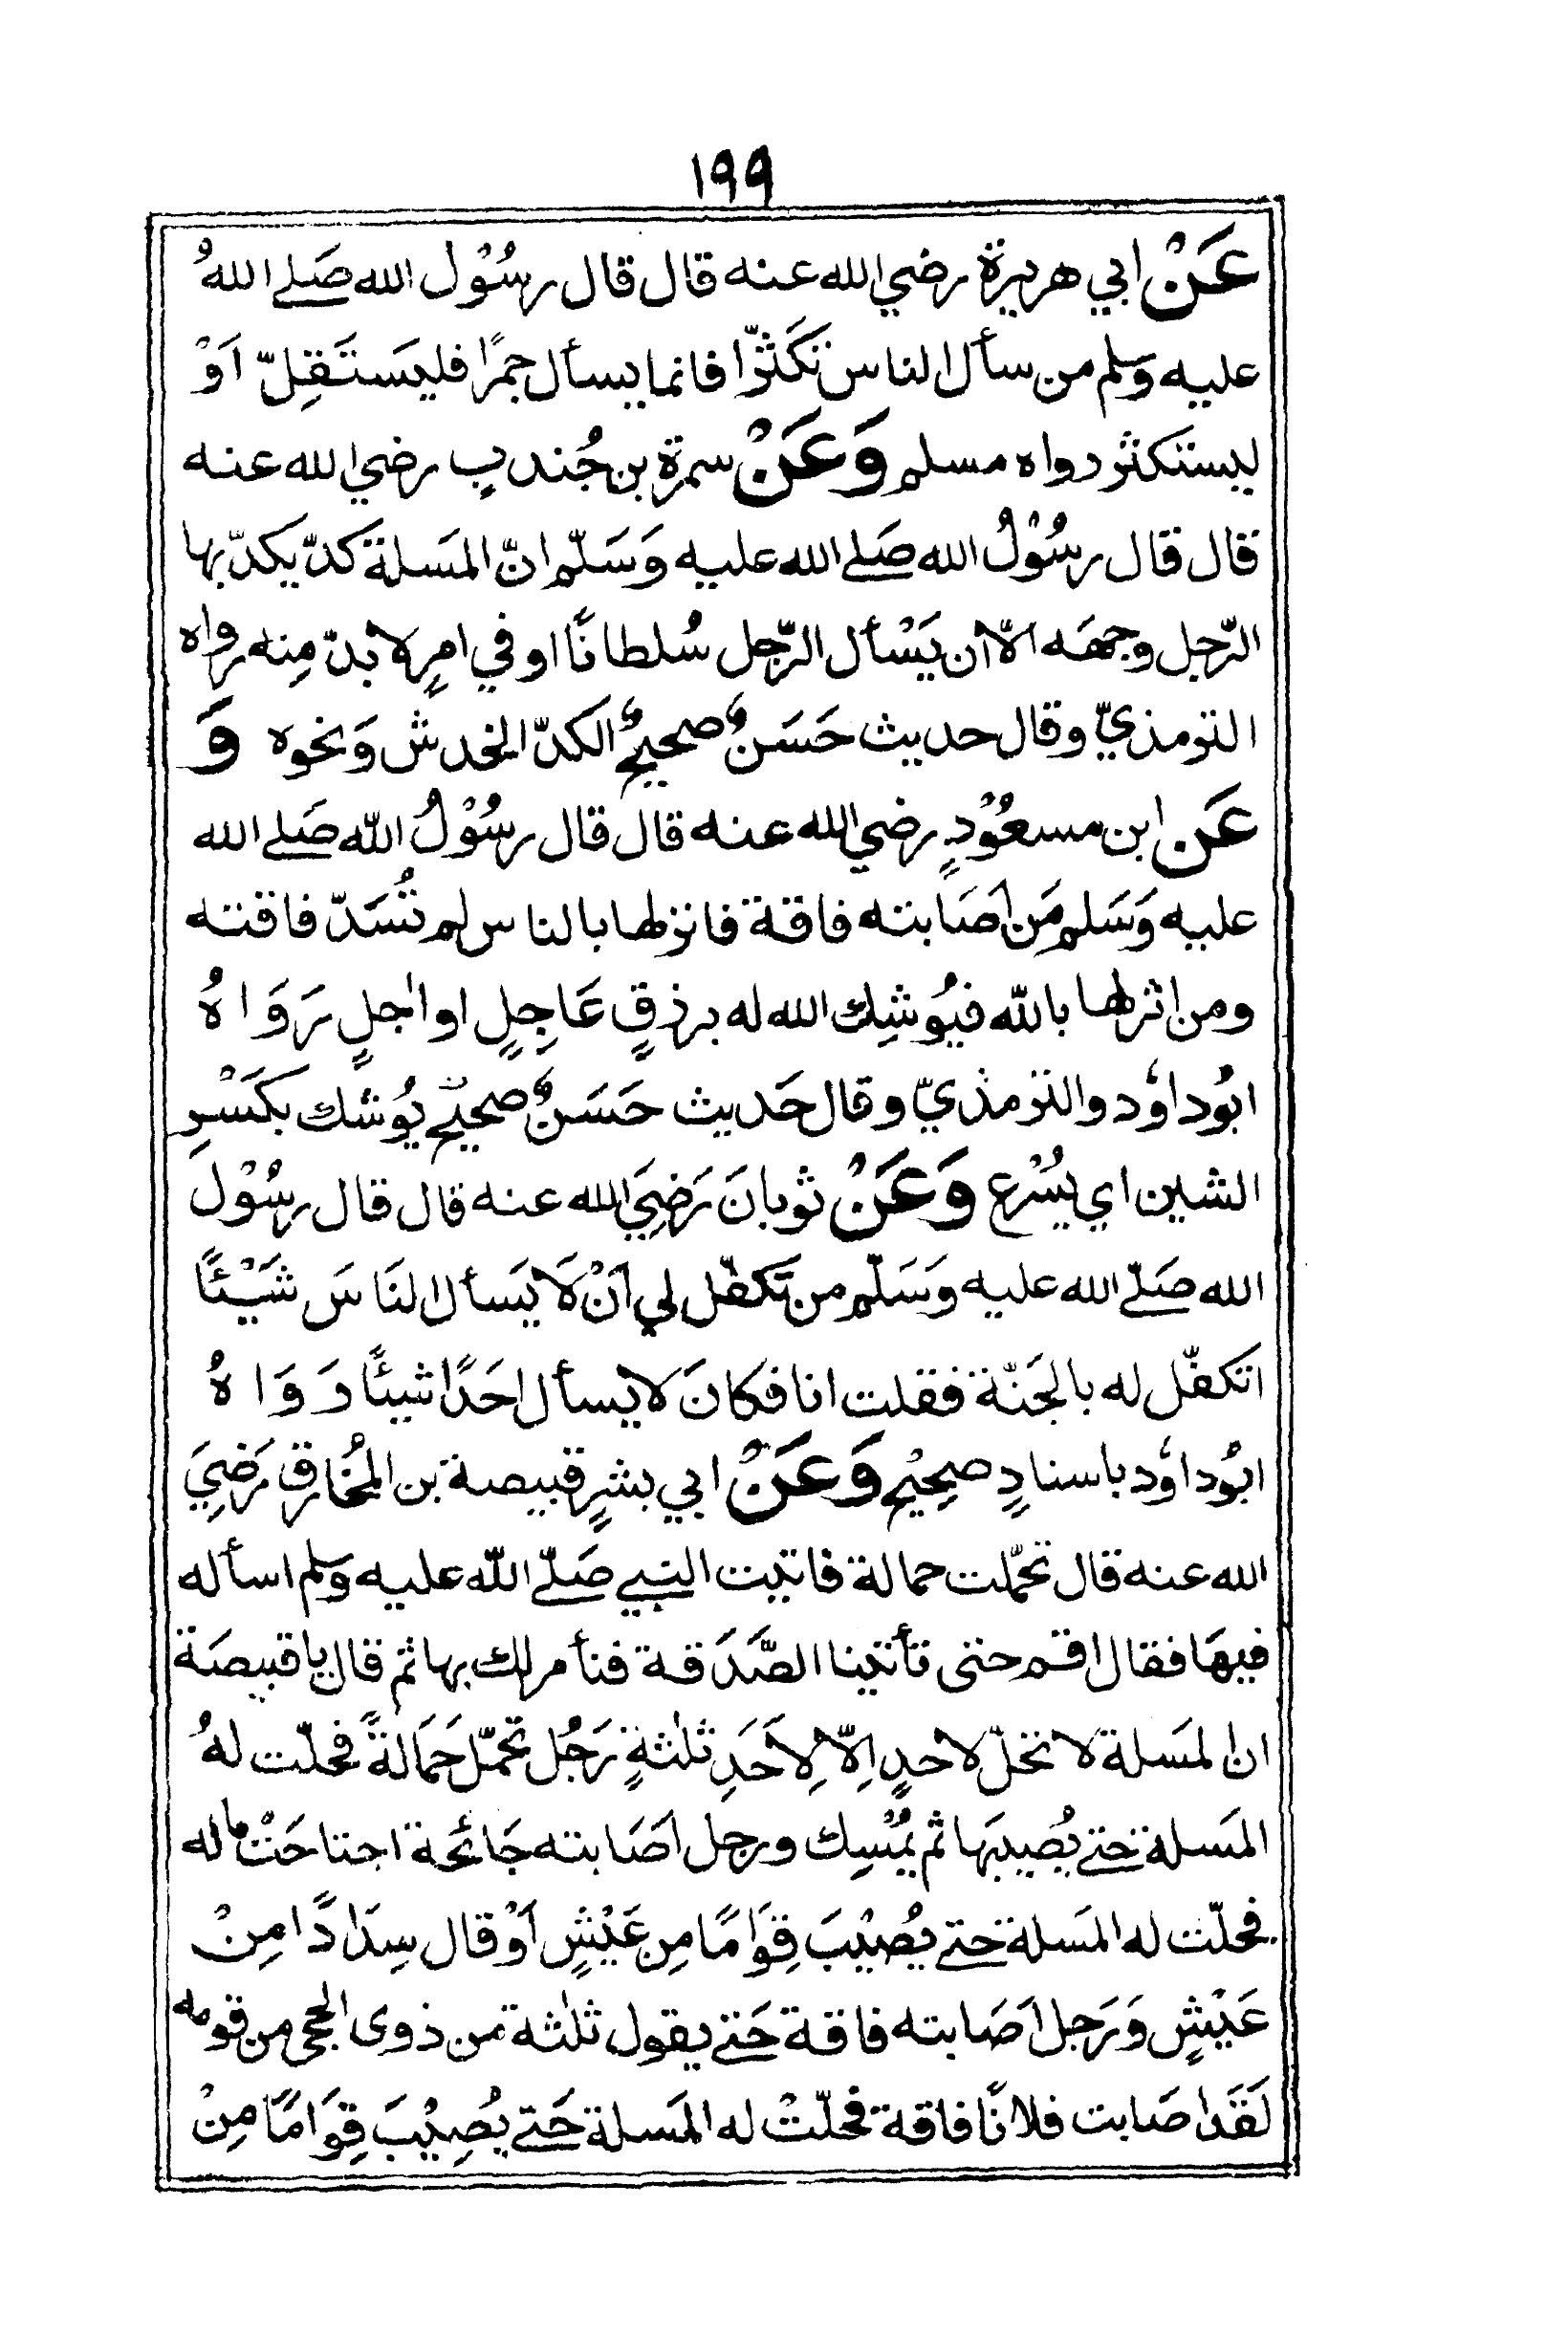 ١٩٩
عَنْ ابي هريرة رضي الله عنه قال قال رسُوْل الله صَلے اللهُ
عليه وسلم من سأل الناس تَكَثّرًا فانما يسأل جمرًا فليَستَقِلّ اَوْ
ليستكثر رواه مسلم وَعَنْ سمرة بن جُندبٍ رضي الله عنه
قال قال رسُوْلُ الله صَلے الله عليه وَسَلّم انّ المَسلة كدّ يكدّ بها
الرّجل وجهَه الّا ان يَسْأل الرّجل سُلطانًا او في امرٍ لا بدّ مِنه رواه
الترمذيّ وقال حديث حَسَنٌ صحيحٌ الكدّ الخدش وَنحوه وَ
عَن ابن مسعُوْدٍ رضي الله عنه قال قال رسُوْلُ اللّه صَلے الله
عليه وَسَلم مَن اَصَابته فاقة فانزلها بالناس لم تُسَدّ فاقته
ومن انزلها باللّه فيُوشِك الله له برزقٍ عَاجِلٍ او اٰجلٍ رَوَاهُ
ابُوداوٗد والترمذيّ وقال حَديث حَسَنٌ صحيحٌ يُوشك بكَسْرِ
الشين اي يُسْرع وَعَنْ ثوبانَ رَضِيَ الله عنه قال قال رسُوْلَ
الله صَلّے الله عليه وَسَلّم من تَكفّل لي اَنْ لَا يَسأل النَاسَ شَيْئًا
اتكفّل له بالجَنّة فقلت انا فكانَ لا يسأل احَدًا شيئًا رَوَاهُ
ابُوداوٗد باسنادٍ صحِيْحٍ وَعَنْ ابي بشرٍ قبيصة بن المُخارق رَضِيَ
الله عنه قال تحمّلت حمالة فاتيت النبي صَلّے اللّه عليه وسلم اسأله
فيهَا فقال اقم حتى تأتينا الصَّدَقة فنأمر لك بها ثم قال يا قبيصَة
ان المَسلة لا تحلّ لاحدٍ اِلّا لِاَحَدِ ثلٰثةٍ رَجُل تحمّل حَمَالةً فحلّت لهُ
المَسلة حتے يُصيبَها ثم يُمْسِك ورجل اَصَابته جَائحة اجتاحَتْ ماله
فحلّت له المَسلة حتے يُصيْبَ قِوَامًا مِن عَيْشٍ اَوْ قال سِدَادًا مِنْ
عَيْشٍ وَرَجل اَصَابته فاقة حَتے يقول ثلٰثة من ذوى الحجى من قومه
لَقَد اصَابت فلانًا فاقة فحلّتْ له المَسلة حَتے يُصِيْبَ قِوَامًا مِنْ